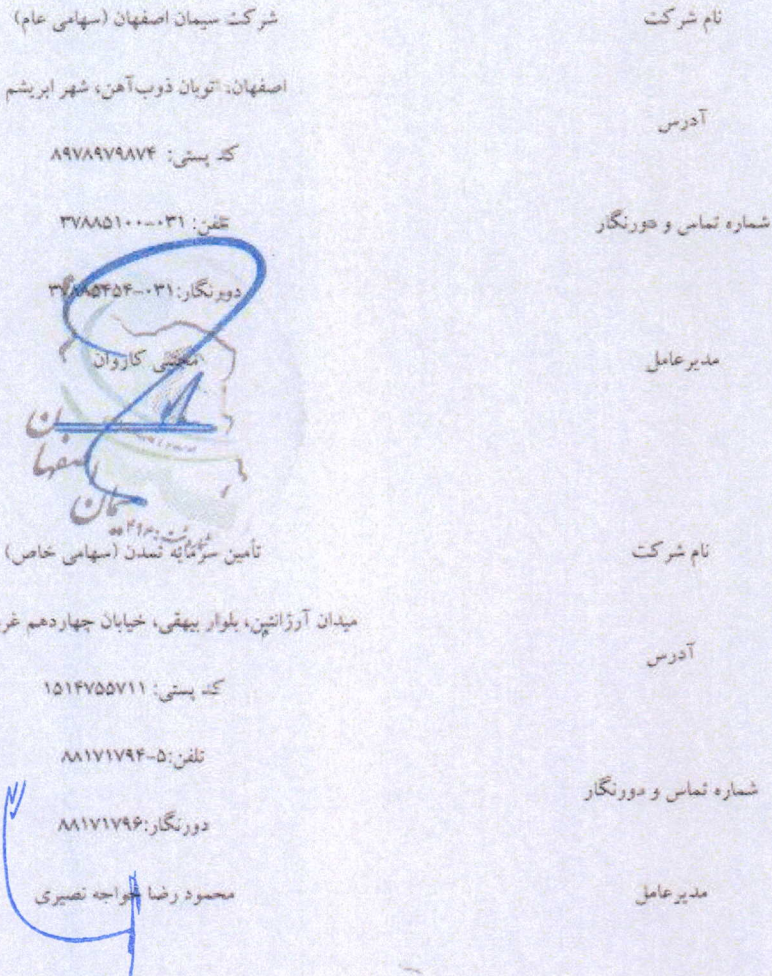 نام شرکت
شرکت سیمان اصفهان (سهامی عام)
آدرس
اصفهان، اتوبان ذوب‌آهن، شهر ابریشم
کد پستی: ۸۹۷۸۹۷۹۸۷۴
شماره تماس و دورنگار
تلفن: ۰۳۱-۳۷۸۸۵۱۰۰
دورنگار: ۰۳۱-۳۷۸۸۵۴۵۴
مدیرعامل
مجتبی کاروان
سیمان
اصفهان
نام شرکت
تأمین سرمایه تمدن (سهامی خاص)
آدرس
میدان آرژانتین، بلوار بیهقی، خیابان چهاردهم
کد پستی: ۱۵۱۴۷۵۵۷۱۱
شماره تماس و دورنگار
تلفن:۵-۸۸۱۷۱۷۹۴
دورنگار:۸۸۱۷۱۷۹۶
مدیرعامل
محمود رضا خواجه نصیری